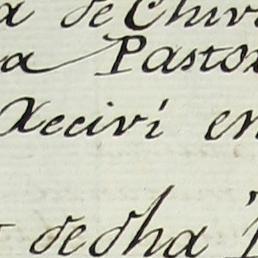 a de Chiv
a Pastor
Xecivi en
de dha